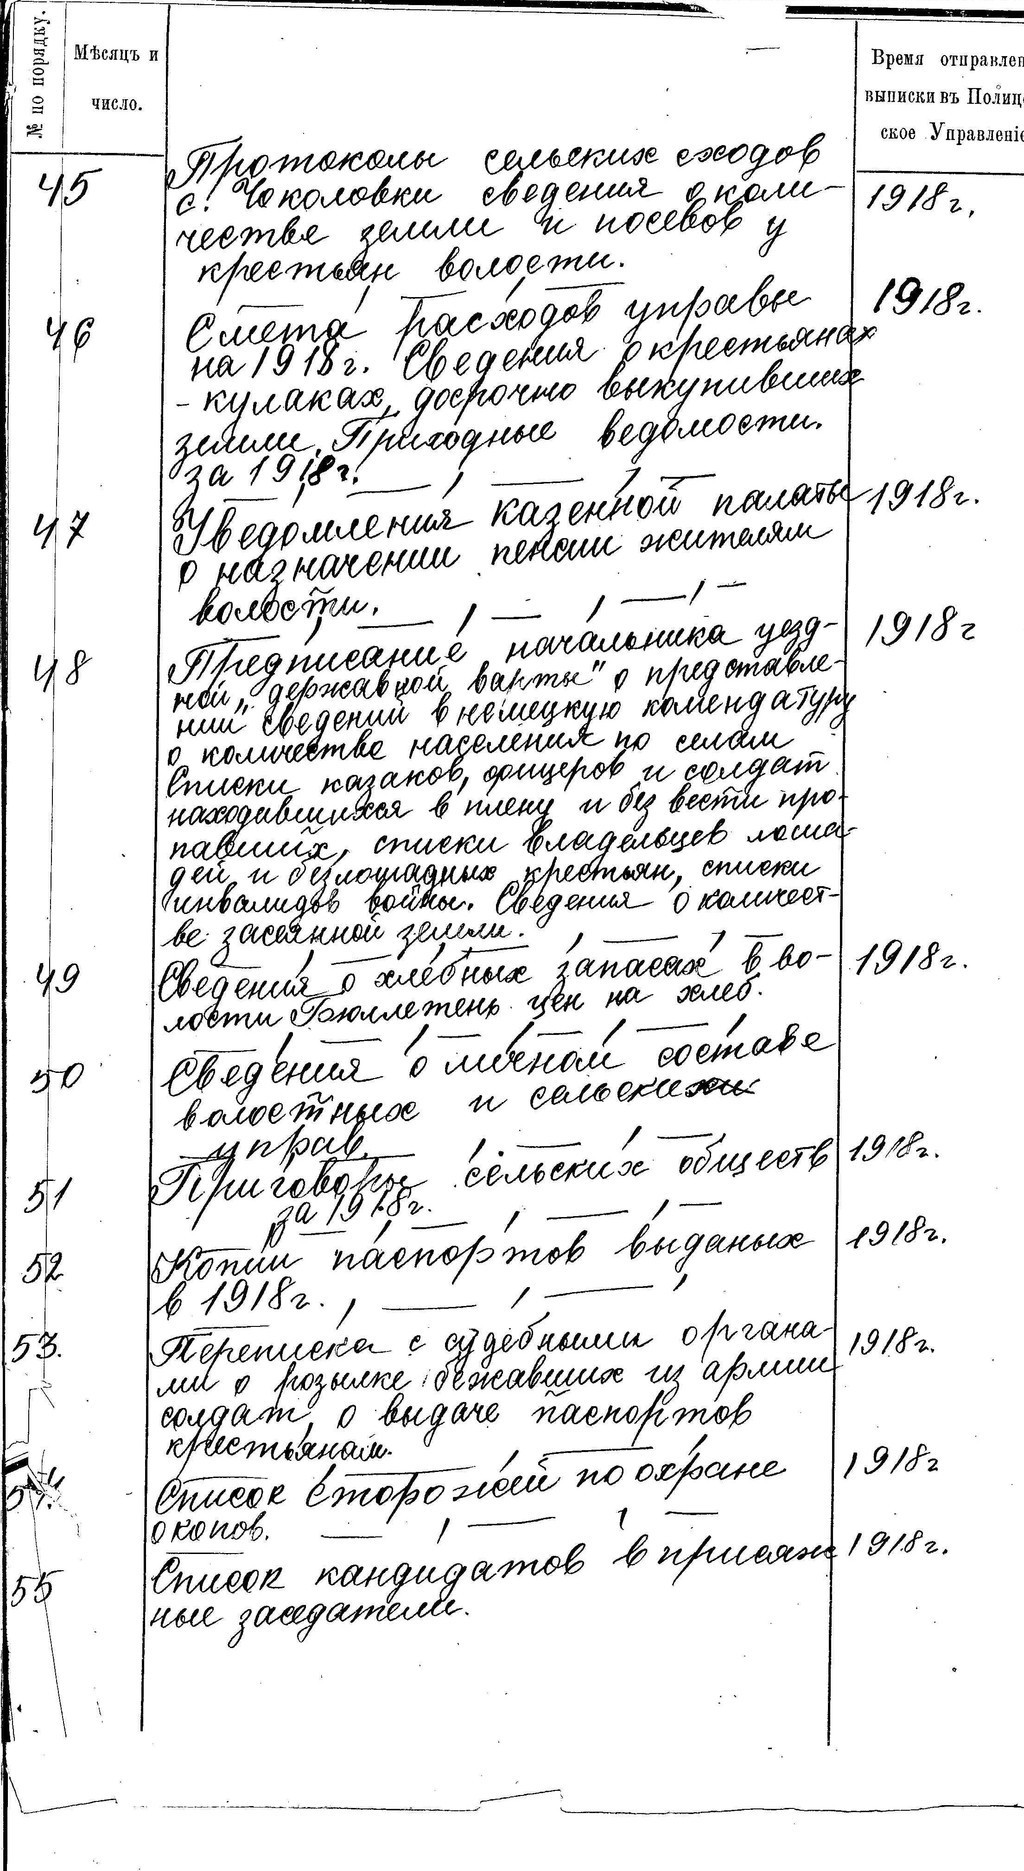 № по порядку.
Мѣсяцъ и
число.
Время отправлен
выписки въ Полиц
ское Управленіе
45
Протоколы сельских сходов
с. Чоколовки сведения о коли-
честве земли и посевов у
крестьян волости.
1918 г.
46
Смета расходов управы
на 1918 г. Сведения о крестьянах
- кулаках, досрочно выкупивших
земли. Приходные ведомости.
за 1918 г.
1918 г.
47
Уведомления казенной палаты
о назначении пенсии жителям
волости.
1918 г.
48
Предписание начальника уезд-
ной „державной варты" о представле-
нии сведений в немецкую комендатуру
о количестве населения по селам
Списки казаков, офицеров и солдат
находившихся в плену и без вести про-
павших, списки владельцев лоша-
дей и безлошадных крестьян, списки
инвалидов войны. Сведения о количест-
ве засеянной земли.
1918 г
49
Сведения о хлебных запасах в во-
лости Бюллетень цен на хлеб.
1918 г.
50
Сведения о личном составе
волостных и сельских
управ.
51
Приговоры сельских обществ
за 1918 г.
1918 г.
52
Копии паспортов выданых
в 1918 г.
1918 г.
53.
Переписка с судебными органа-
ми о розыске бежавших из армии
солдат, о выдаче паспортов
крестьянам.
1918 г.
54.
Список сторожей по охране
окопов.
1918 г
55
Список кандидатов в присяж
ные заседатели.
1918 г.